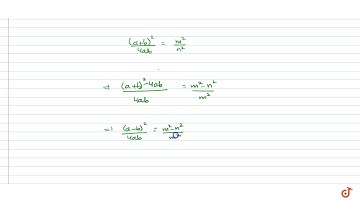 (a+b)²/4ab = m²/n²
⇒ (a+b)²-4ab/4ab = m²-n²/m²
⇒ (a-b)²/4ab = m²-n²